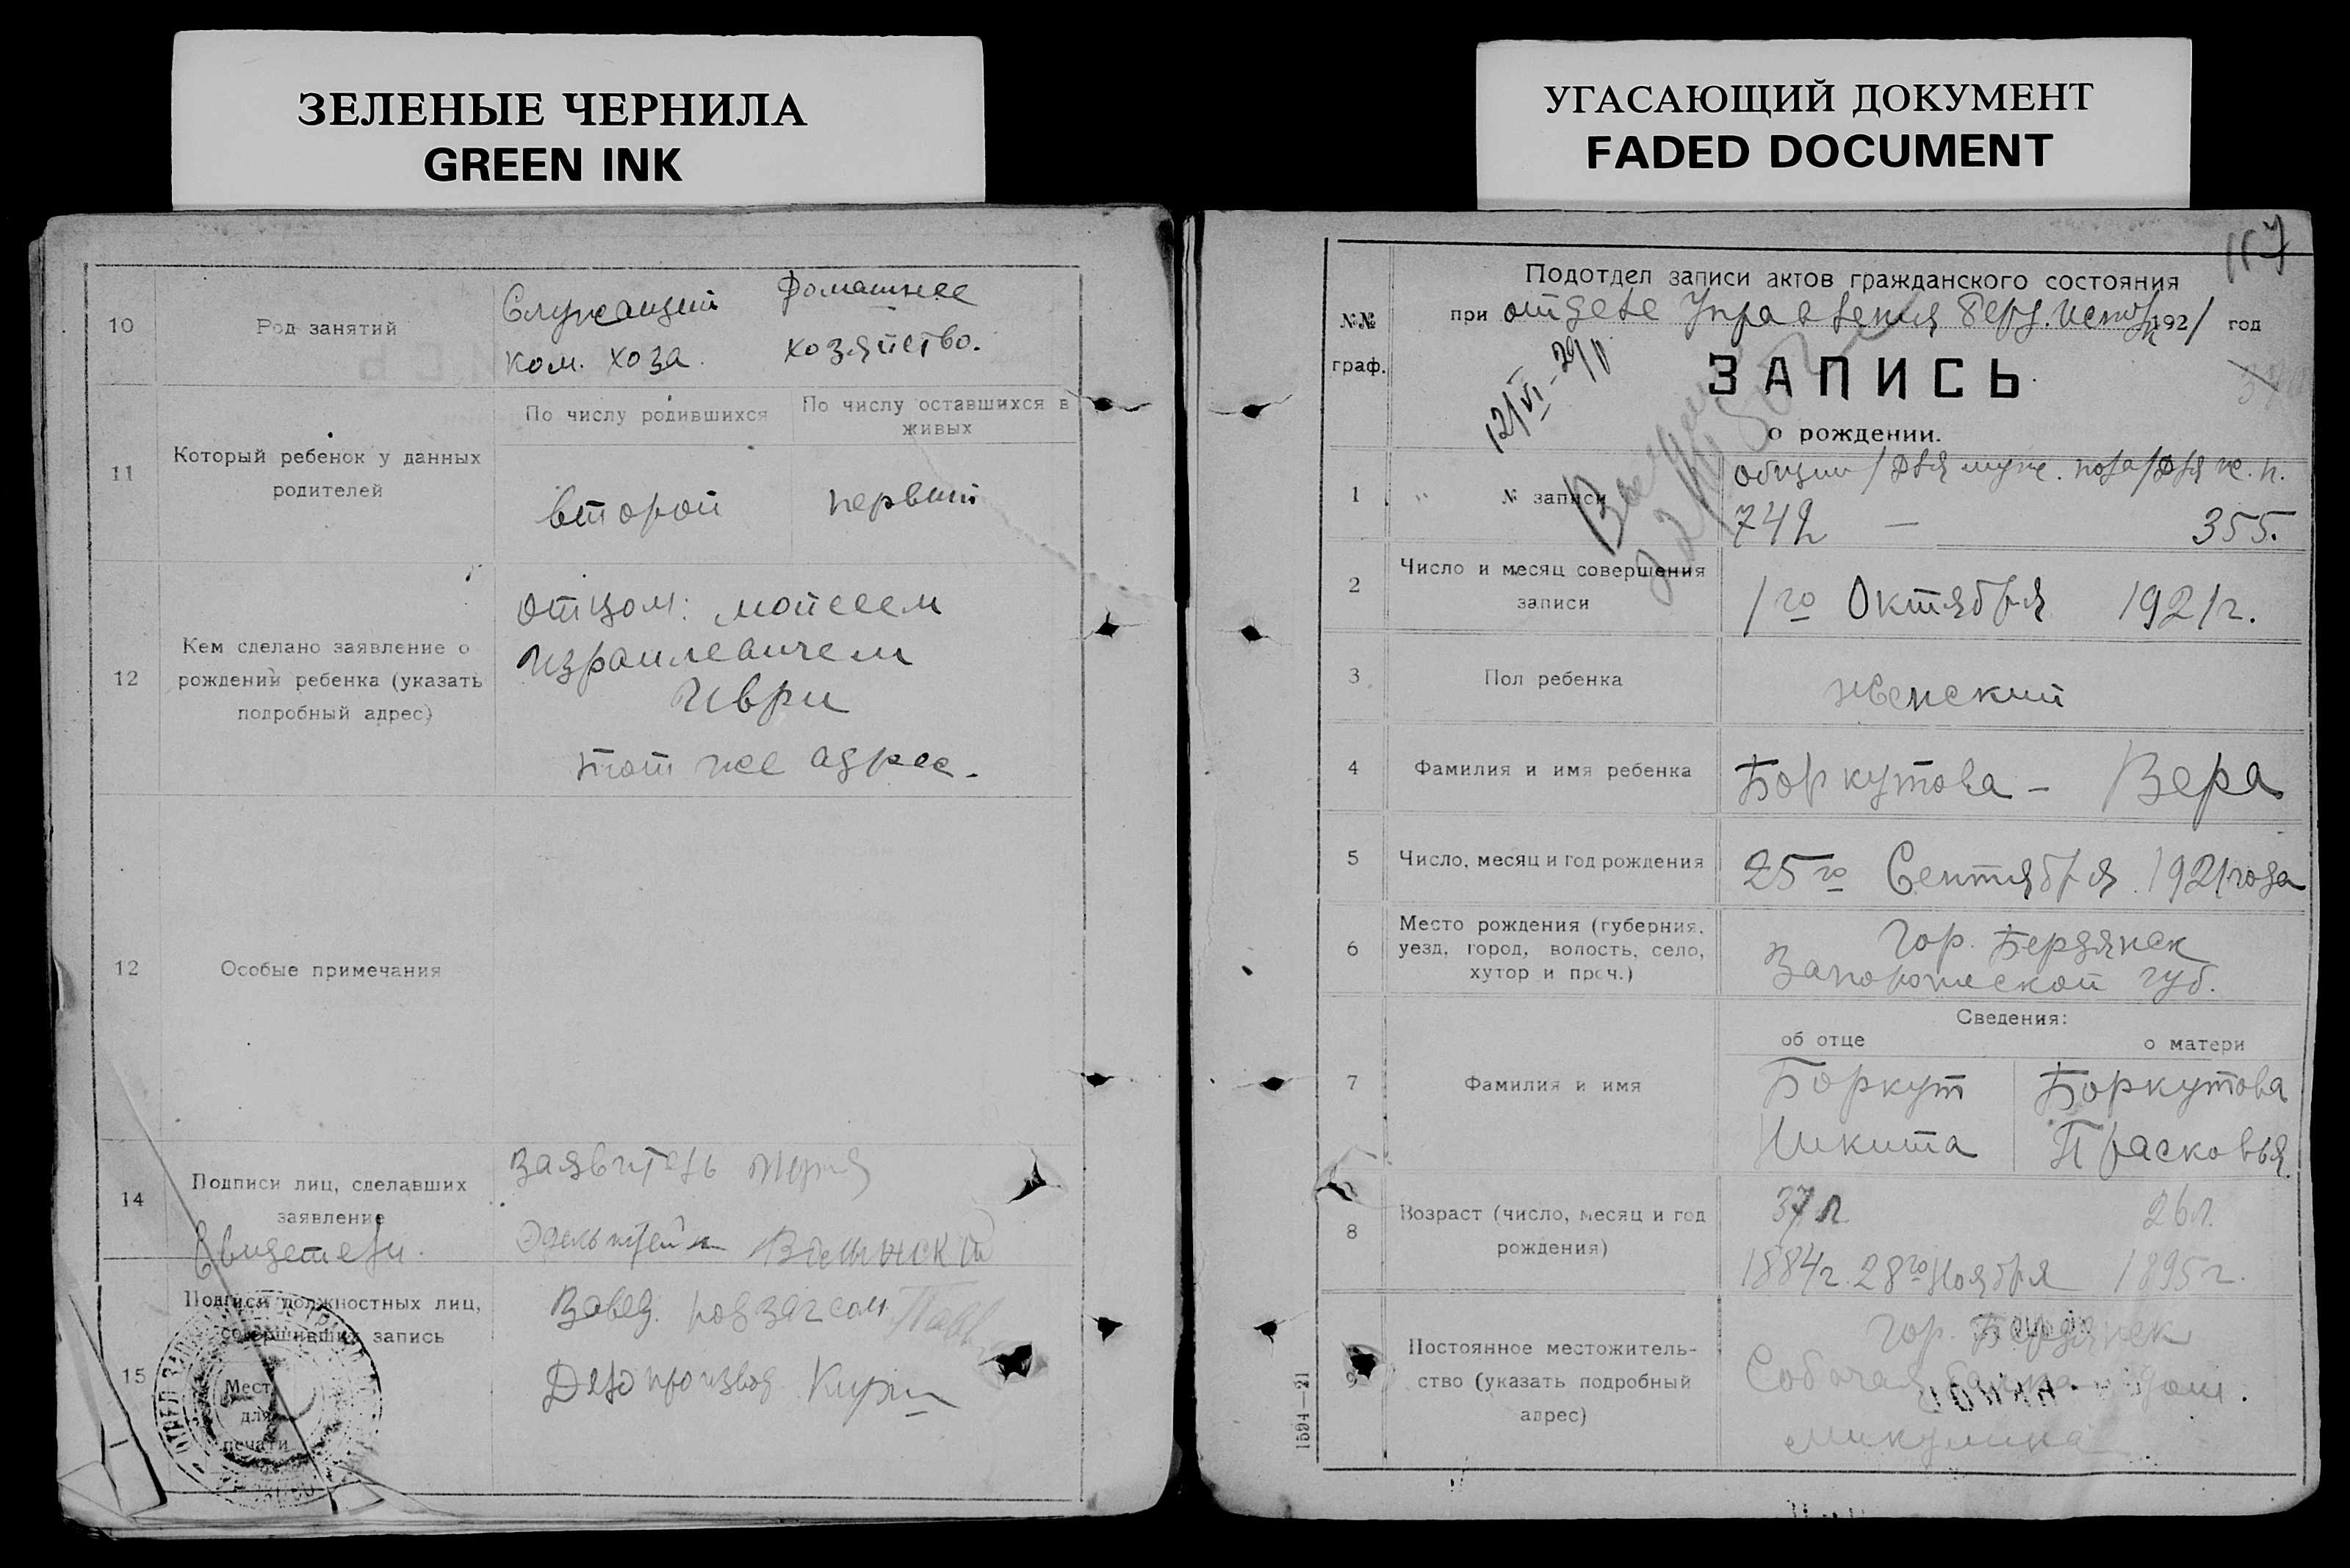 ЗЕЛЕНЫЕ ЧЕРНИЛА
GREEN INK
10
Род занятий
Служащий
ком. хоза.
Домашнее
хозяйство.
11
Который ребенок у данных
родителей
По числу родившихся
По числу оставшихся в
живых
второй
первый
12
Кем сделано заявление о
рождений ребенка (указать
подробный адрес)
отцом: Мойсеем
Израилевичем
Иври
тот же адрес.
12
Особые примечания
14
Подписи лиц, сделавших
заявление
Свидетели.
Заявитель
Волынский
15
Подписи должностных лиц,
совершивших запись
Завед. подзагсом
Делопроизвод.
Место
для
печати
УГАСАЮЩИЙ ДОКУМЕНТ
FADED DOCUMENT
№№
граф.
Подотдел записи актов гражданского состояния
при отделе Управления Берд. Исполк 1921 год
12/VI-29
ЗАПИСЬ
о рождении.
1
№ записи
общий / для муж. пола / для ж. п.
742 — 355.
2
Число и месяц совершения
записи
1го Октября 1921г.
3
Пол ребенка
женский
4
Фамилия и имя ребенка
Боркутова - Вера
5
Число, месяц и год рождения
25го Сентября 1921 года
6
Место рождения (губерния,
уезд, город, волость, село,
хутор и проч.)
Гор. Бердянск
Запорожской губ.
Сведения:
об отце
о матери
7
Фамилия и имя
Боркут
Никита
Боркутова
Прасковья
8
Возраст (число, месяц и год
рождения)
37 л
26 л.
1884г. 28го Ноября
1895г.
9
Постоянное местожитель-
ство (указать подробный
адрес)
Гор. Бердянск
Собачая балка дом.
Микулина
1594—21